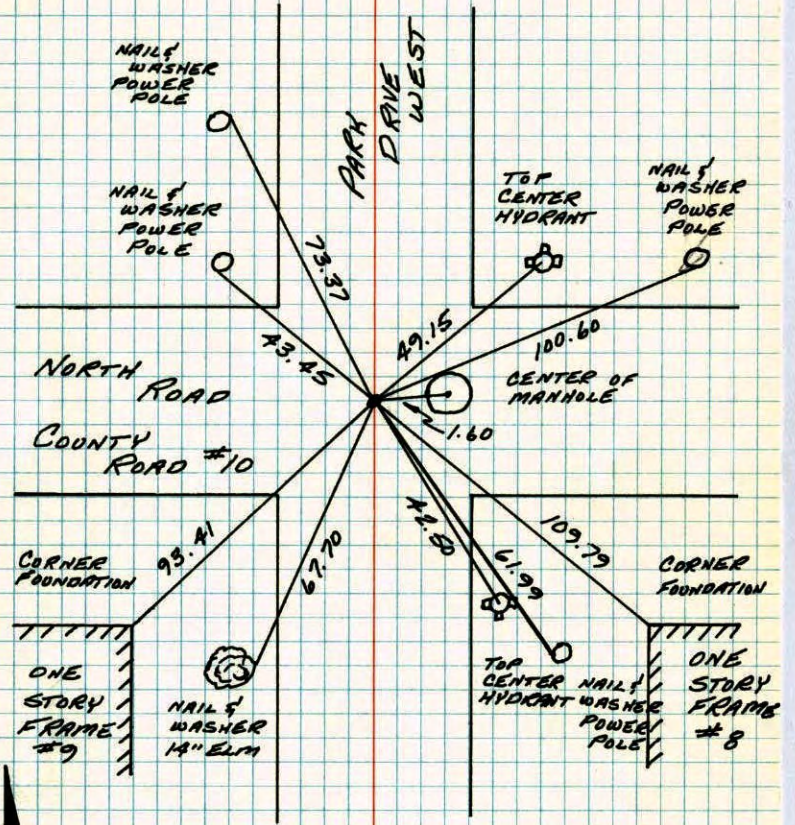 NAIL &
WASHER
POWER
POLE
PARK
DRIVE
WEST
NAIL &
WASHER
POWER
POLE
TOP
CENTER
HYDRANT
NAIL &
WASHER
POWER
POLE
73.37
43.45
49.15
100.60
NORTH
ROAD
COUNTY
ROAD #10
CENTER OF
MANHOLE
1.60
93.41
67.70
42.50
61.99
109.79
CORNER
FOUNDATION
CORNER
FOUNDATION
ONE
STORY
FRAME
#9
NAIL &
WASHER
14" ELM
TOP
CENTER
HYDRANT
NAIL &
WASHER
POWER
POLE
ONE
STORY
FRAME
#8